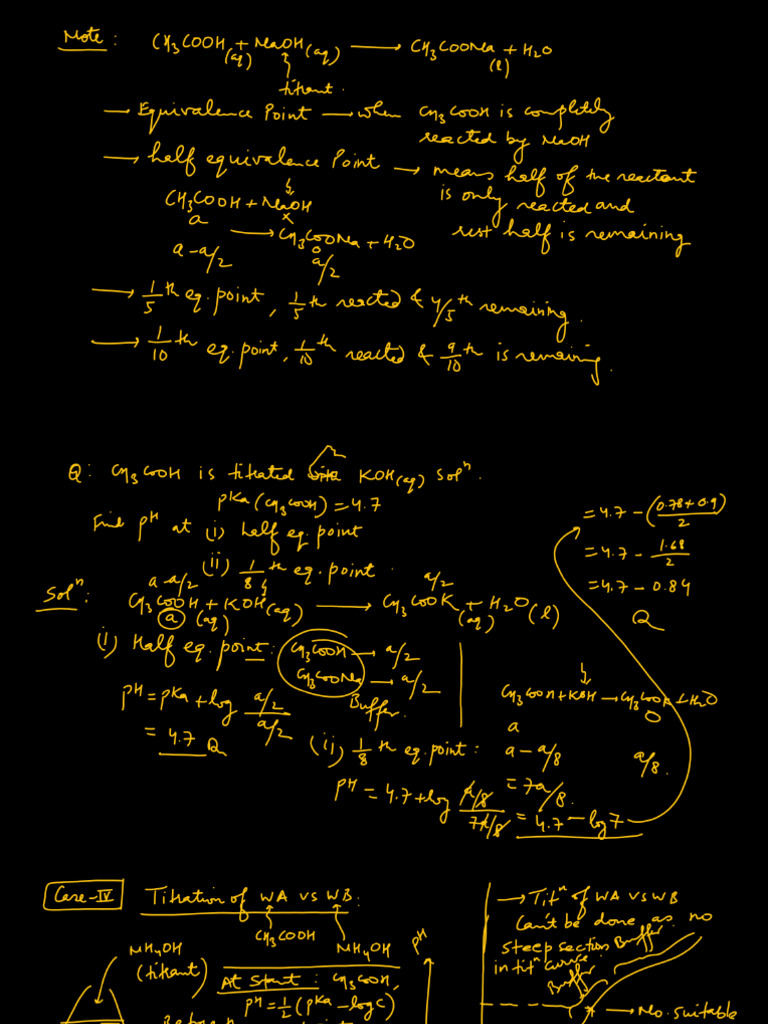 Note : CH3COOH(aq) + NaOH(aq) → CH3COONa + H2O(l)
titrant.
→ Equivalence Point → when CH3COOH is completely
reacted by NaOH
→ half equivalence Point → means half of the reactant
is only reacted and
rest half is remaining
CH3COOH + NaOH
a x
→ CH3COONa + H2O
0
a - a/2 a/2
→ 1/5 th eq. point, 1/5 th reacted & 4/5 th remaining.
→ 1/10 th eq. point, 1/10 th reacted & 9/10 th is remaining.
Q: CH3COOH is titrated with KOH(aq) solⁿ.
pKa(CH3COOH) = 4.7
Find pH at (i) half eq. point
(ii) 1/8 th eq. point.
a-a/2 a/2
Solⁿ: CH3COOH + KOH(aq) → CH3COOK + H2O(l)
a (aq) (aq)
(i) Half eq. point: CH3COOH → a/2
CH3COONa → a/2
Buffer.
pH = pKa + log (a/2)/(a/2)
= 4.7
CH3COOH + KOH → CH3COOK + H2O
a 0
(ii) 1/8 th eq. point: a - a/8 a/8.
= 7a/8.
pH = 4.7 + log (a/8)/(7a/8) = 4.7 - log 7
= 4.7 - (0.78 + 0.9)/2
= 4.7 - 1.68/2
= 4.7 - 0.84
Case-IV Titration of WA vs WB:
CH3COOH NH4OH
NH4OH
(titrant)
At Start : CH3COOH,
pH = 1/2 (pKa - log C)
pH
→ Titⁿ of WA vs WB
Can't be done as no
steep section
in titⁿ curve
Buffer
Buffer
→ No. suitable